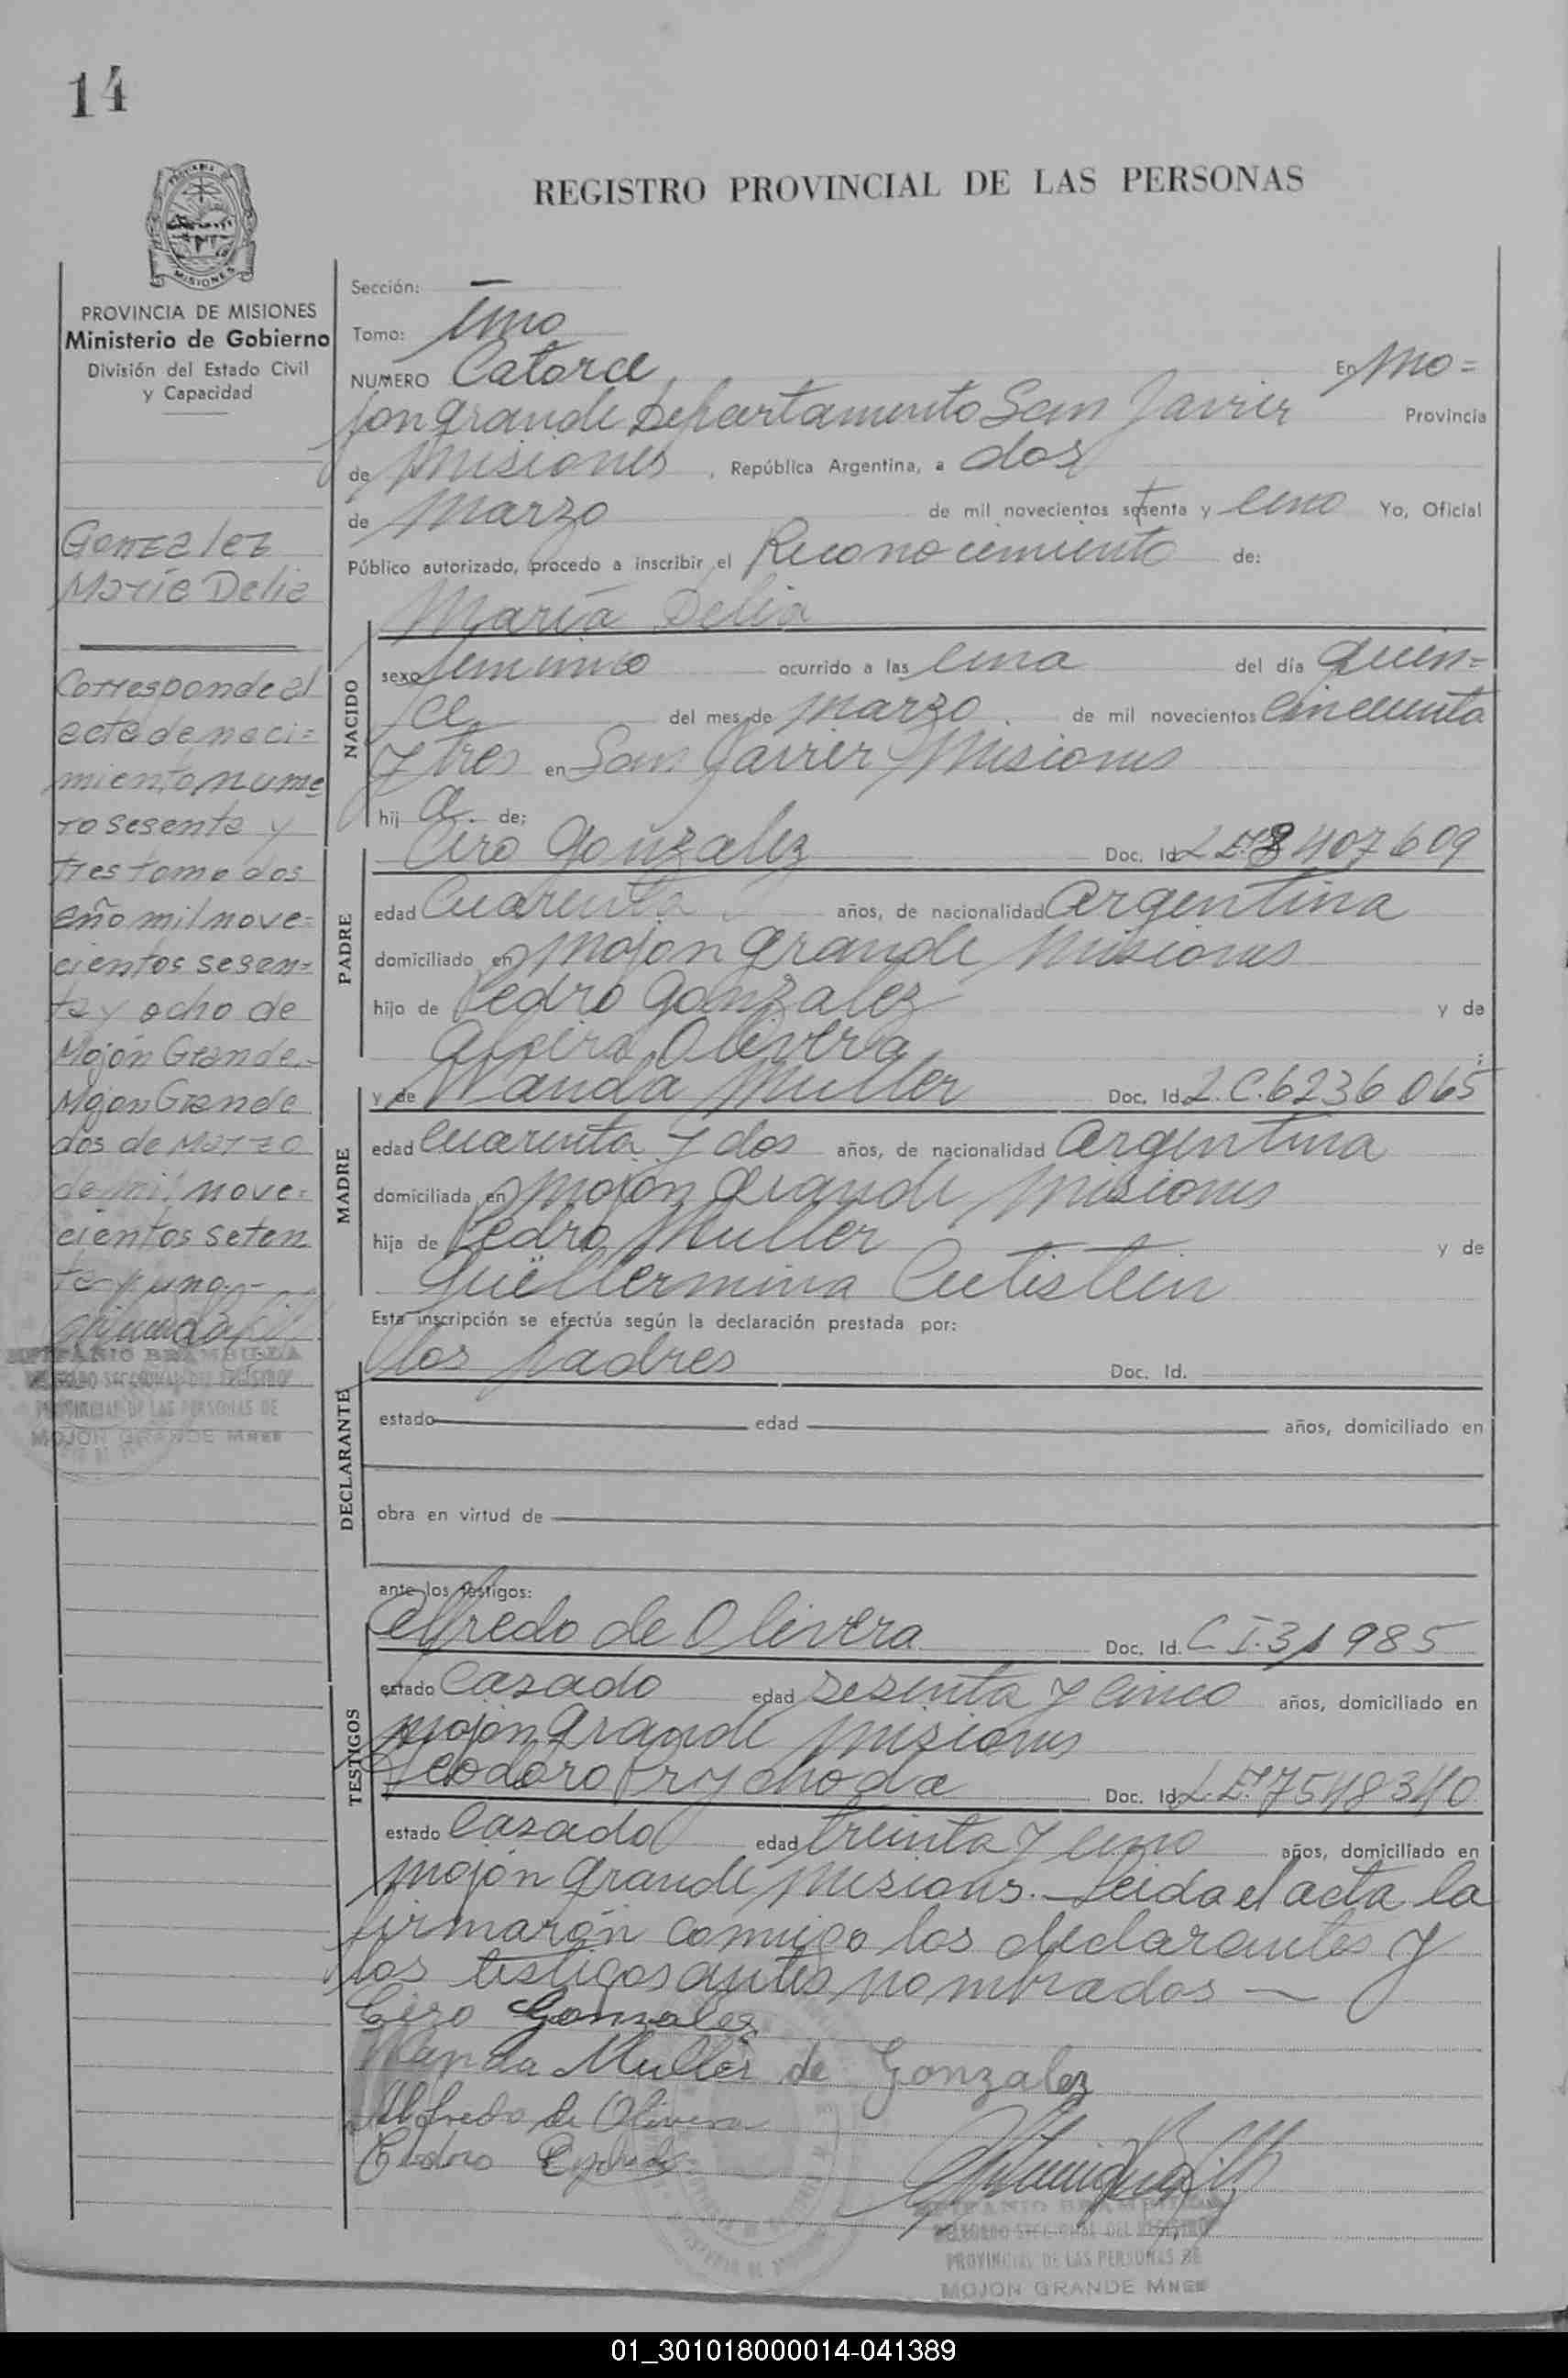 14
REGISTRO PROVINCIAL DE LAS PERSONAS
PROVINCIA DE MISIONES
Ministerio de Gobierno
División del Estado Civil
y Capacidad
Gonzalez
María Delia
Corresponde al
acta de naci=
miento nume
ro sesenta y
tres tomo dos
año mil nove=
cientos sesen=
ta y ocho de
Mojón Grande.-
Mojon Grande
dos de Marzo
de mil nove=
cientos seten
ta y uno.-
BRAMBILLA
PROVINCIAL DE LAS PERSONAS DE
MOJON GRANDE Mnes
Sección: —
Tomo: Uno
NUMERO Catorce En Mo=
jon grande Departamento San Javier Provincia
de Misiones , República Argentina, a dos
de Marzo de mil novecientos setenta y uno Yo, Oficial
Público autorizado, procedo a inscribir el Reconocimiento de:
María Delia
NACIDO
sexo femenino ocurrido a las una del día quin=
ce del mes de marzo de mil novecientos cincuenta
y tres en San Javier Misiones
hij a de:
PADRE
Ciro Gonzalez Doc. Id. L.E. 8407609
edad Cuarenta años, de nacionalidad Argentina
domiciliado en Mojon Grande Misiones
hijo de Pedro Gonzalez y de
Olivera ;
MADRE
y de Wanda Muller Doc. Id. L.C. 6236065
edad cuarenta y dos años, de nacionalidad Argentina
domiciliada en Mojón Grande Misiones
hija de Pedro Muller y de
Guellermina
Esta inscripción se efectúa según la declaración prestada por:
los padres Doc. Id.
DECLARANTE
estado edad años, domiciliado en
obra en virtud de
ante los testigos:
TESTIGOS
Alfredo de Olivera Doc. Id. C.I. 31985
estado Casado edad sesenta y cinco años, domiciliado en
Mojón Grande Misiones
Teodoro Prychoda Doc. Id. L.E. 7548340
estado Casado edad treinta y uno años, domiciliado en
Mojón Grande, Misiones.- Leida el acta la
firmarón conmigo los declarantes y
los testigos antes nombrados —
Ciro Gonzalez
Wanda Muller de Gonzalez
Alfredo de Olivera
PROVINCIAL DE LAS PERSONAS DE
MOJON GRANDE Mnes
01_301018000014-041389